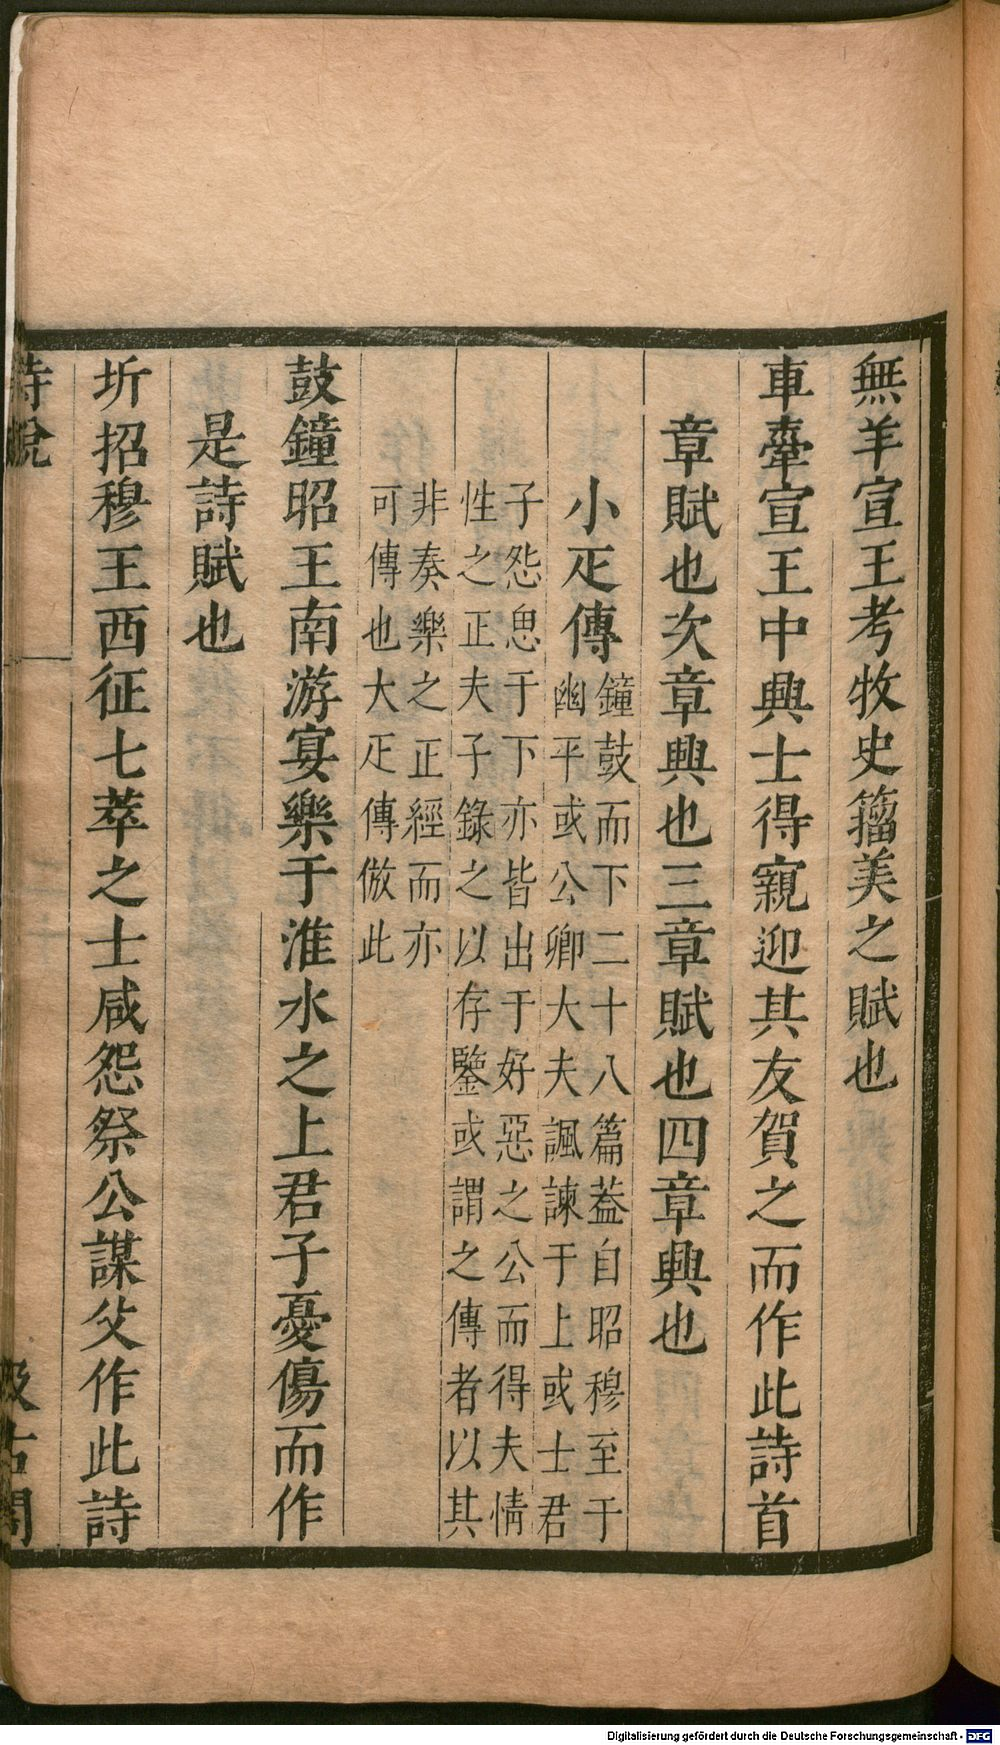 無羊宣王考牧史籀美之賦也
車舝宣王中興士得親迎其友賀之而作此詩首
章賦也次章興也三章賦也四章興也
小疋傳
鐘鼓而下二十八篇蓋自昭穆至于
幽平或公卿大夫諷諫于上或士君
子怨思于下亦皆出于好惡之公而得夫情
性之正夫子錄之以存鑒或謂之傳者以其
非奏樂之正經而亦
可傳也大疋傳倣此
鼓鐘昭王南游宴樂于淮水之上君子憂傷而作
是詩賦也
圻招穆王西征七萃之士咸怨祭公謀父作此詩
詩說
汲古閣
Digitalisierung gefördert durch die Deutsche Forschungsgemeinschaft - DFG